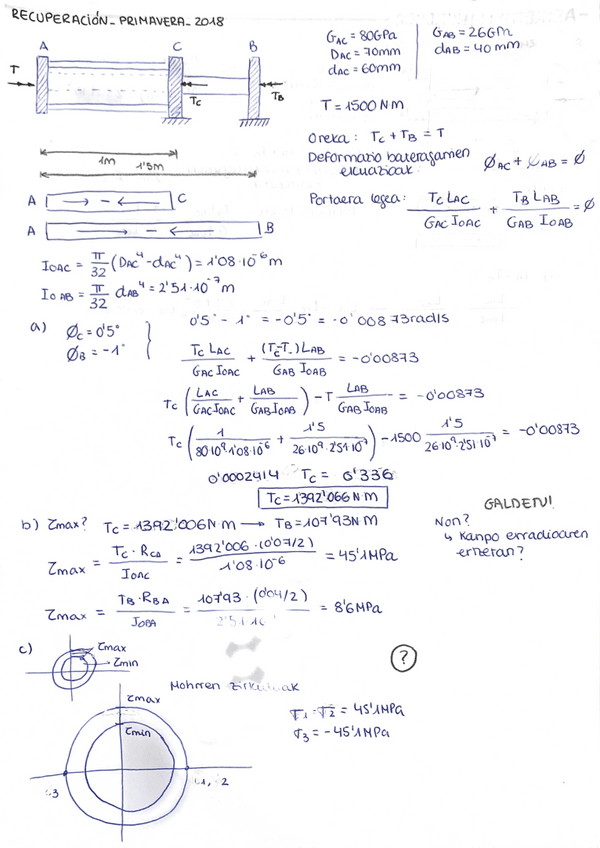 RECUPERACIÓN - PRIMAVERA - 2018
A C B
T Tc TB
1m
1'5m
G_AC = 80GPa
D_AC = 70mm
d_AC = 60mm
G_AB = 26GPa
d_AB = 40mm
T = 1500 N m
Oreka: Tc + TB = T
Deformazio bateragarritasun ekuazioak: Ø_AC + Ø_AB = Ø
Portaera legea: Tc L_AC / G_AC I_OAC + TB L_AB / G_AB I_OAB = Ø
A → - ← C
A → - ← B
I_OAC = π/32 (D_AC⁴ - d_AC⁴) = 1'08·10⁻⁶ m
I_OAB = π/32 d_AB⁴ = 2'51·10⁻⁷ m
a) Øc = 0'5°
ØB = -1°
0'5° - 1° = -0'5° = -0'00873 rad/s
Tc L_AC / G_AC I_OAC + (Tc-T) L_AB / G_AB I_OAB = -0'00873
Tc (L_AC / G_AC I_OAC + L_AB / G_AB I_OAB) - T L_AB / G_AB I_OAB = -0'00873
Tc (1 / 80·10⁹·1'08·10⁻⁶ + 1'5 / 26·10⁹·2'51·10⁻⁷) - 1500 1'5 / 26·10⁹·2'51·10⁻⁷ = -0'00873
0'0002414 Tc = 0'336
Tc = 1392'066 N·m
b) τmax? Tc = 1392'006 N m → TB = 107'93 N·m
τmax = Tc · R_CA / I_OAC = 1392'006 · (0'07/2) / 1'08·10⁻⁶ = 45'1 MPa
τmax = TB · R_BA / I_OBA = 107'93 · (0'04/2) / 2'51·10 = 8'6 MPa
GALDETU!
Non?
↳ Kanpo erradioaren ertzetan?
c)
τmax
τmin
Mohrren zirkuluak
τmax
τmin
σ1 = σ2 = 45'1 MPa
σ3 = -45'1 MPa
?